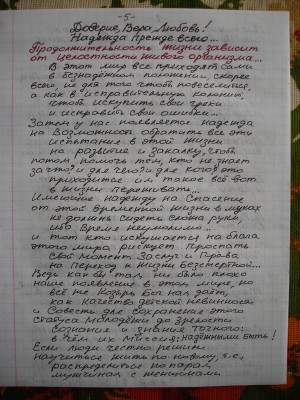 - 5 -
Доверие, Вера, Любовь!
Надежда прежде всего...
Продолжительность жизни зависит
от целостности живого организма...
В этот мир все приходят сами
в безнадёжном положении, скорее
всего, не для того чтоб повеселиться,
а как в исправительную комнату,
чтоб искупить свои грехи
и исправить свои ошибки...
Затем у нас появляется надежда
на возможность обратить все эти
испытания в этой жизни
на развитие и закалку, чтоб
потом помочь тем, кто не знает
за что и для чего и для кого это
приходится им такое всё вот
в жизни переживать...
Имеющие надежду на Спасение
от этой временной жизни в муках
не должны сидеть сложа руки,
ибо Время неумолимо...
и тот кто искушается на блага
этого мира рискует Проспать
свой момент Заслуг и Права
на Переход к Жизни Бессмертной...
Ведь как бы там не было плохо
наше появление в этом мире, но
всё же Козырь Бог нам даёт,
как качество детской невинности
и Совесть для сохранения этого
статуса молодёжи до зрелости
Сознания и знания точного:
в чём их Миссия; надёжными быть!
Если люди честно решили
научиться жить по новому, т.е.,
распределиться по парам,
мужчинам с женщинами